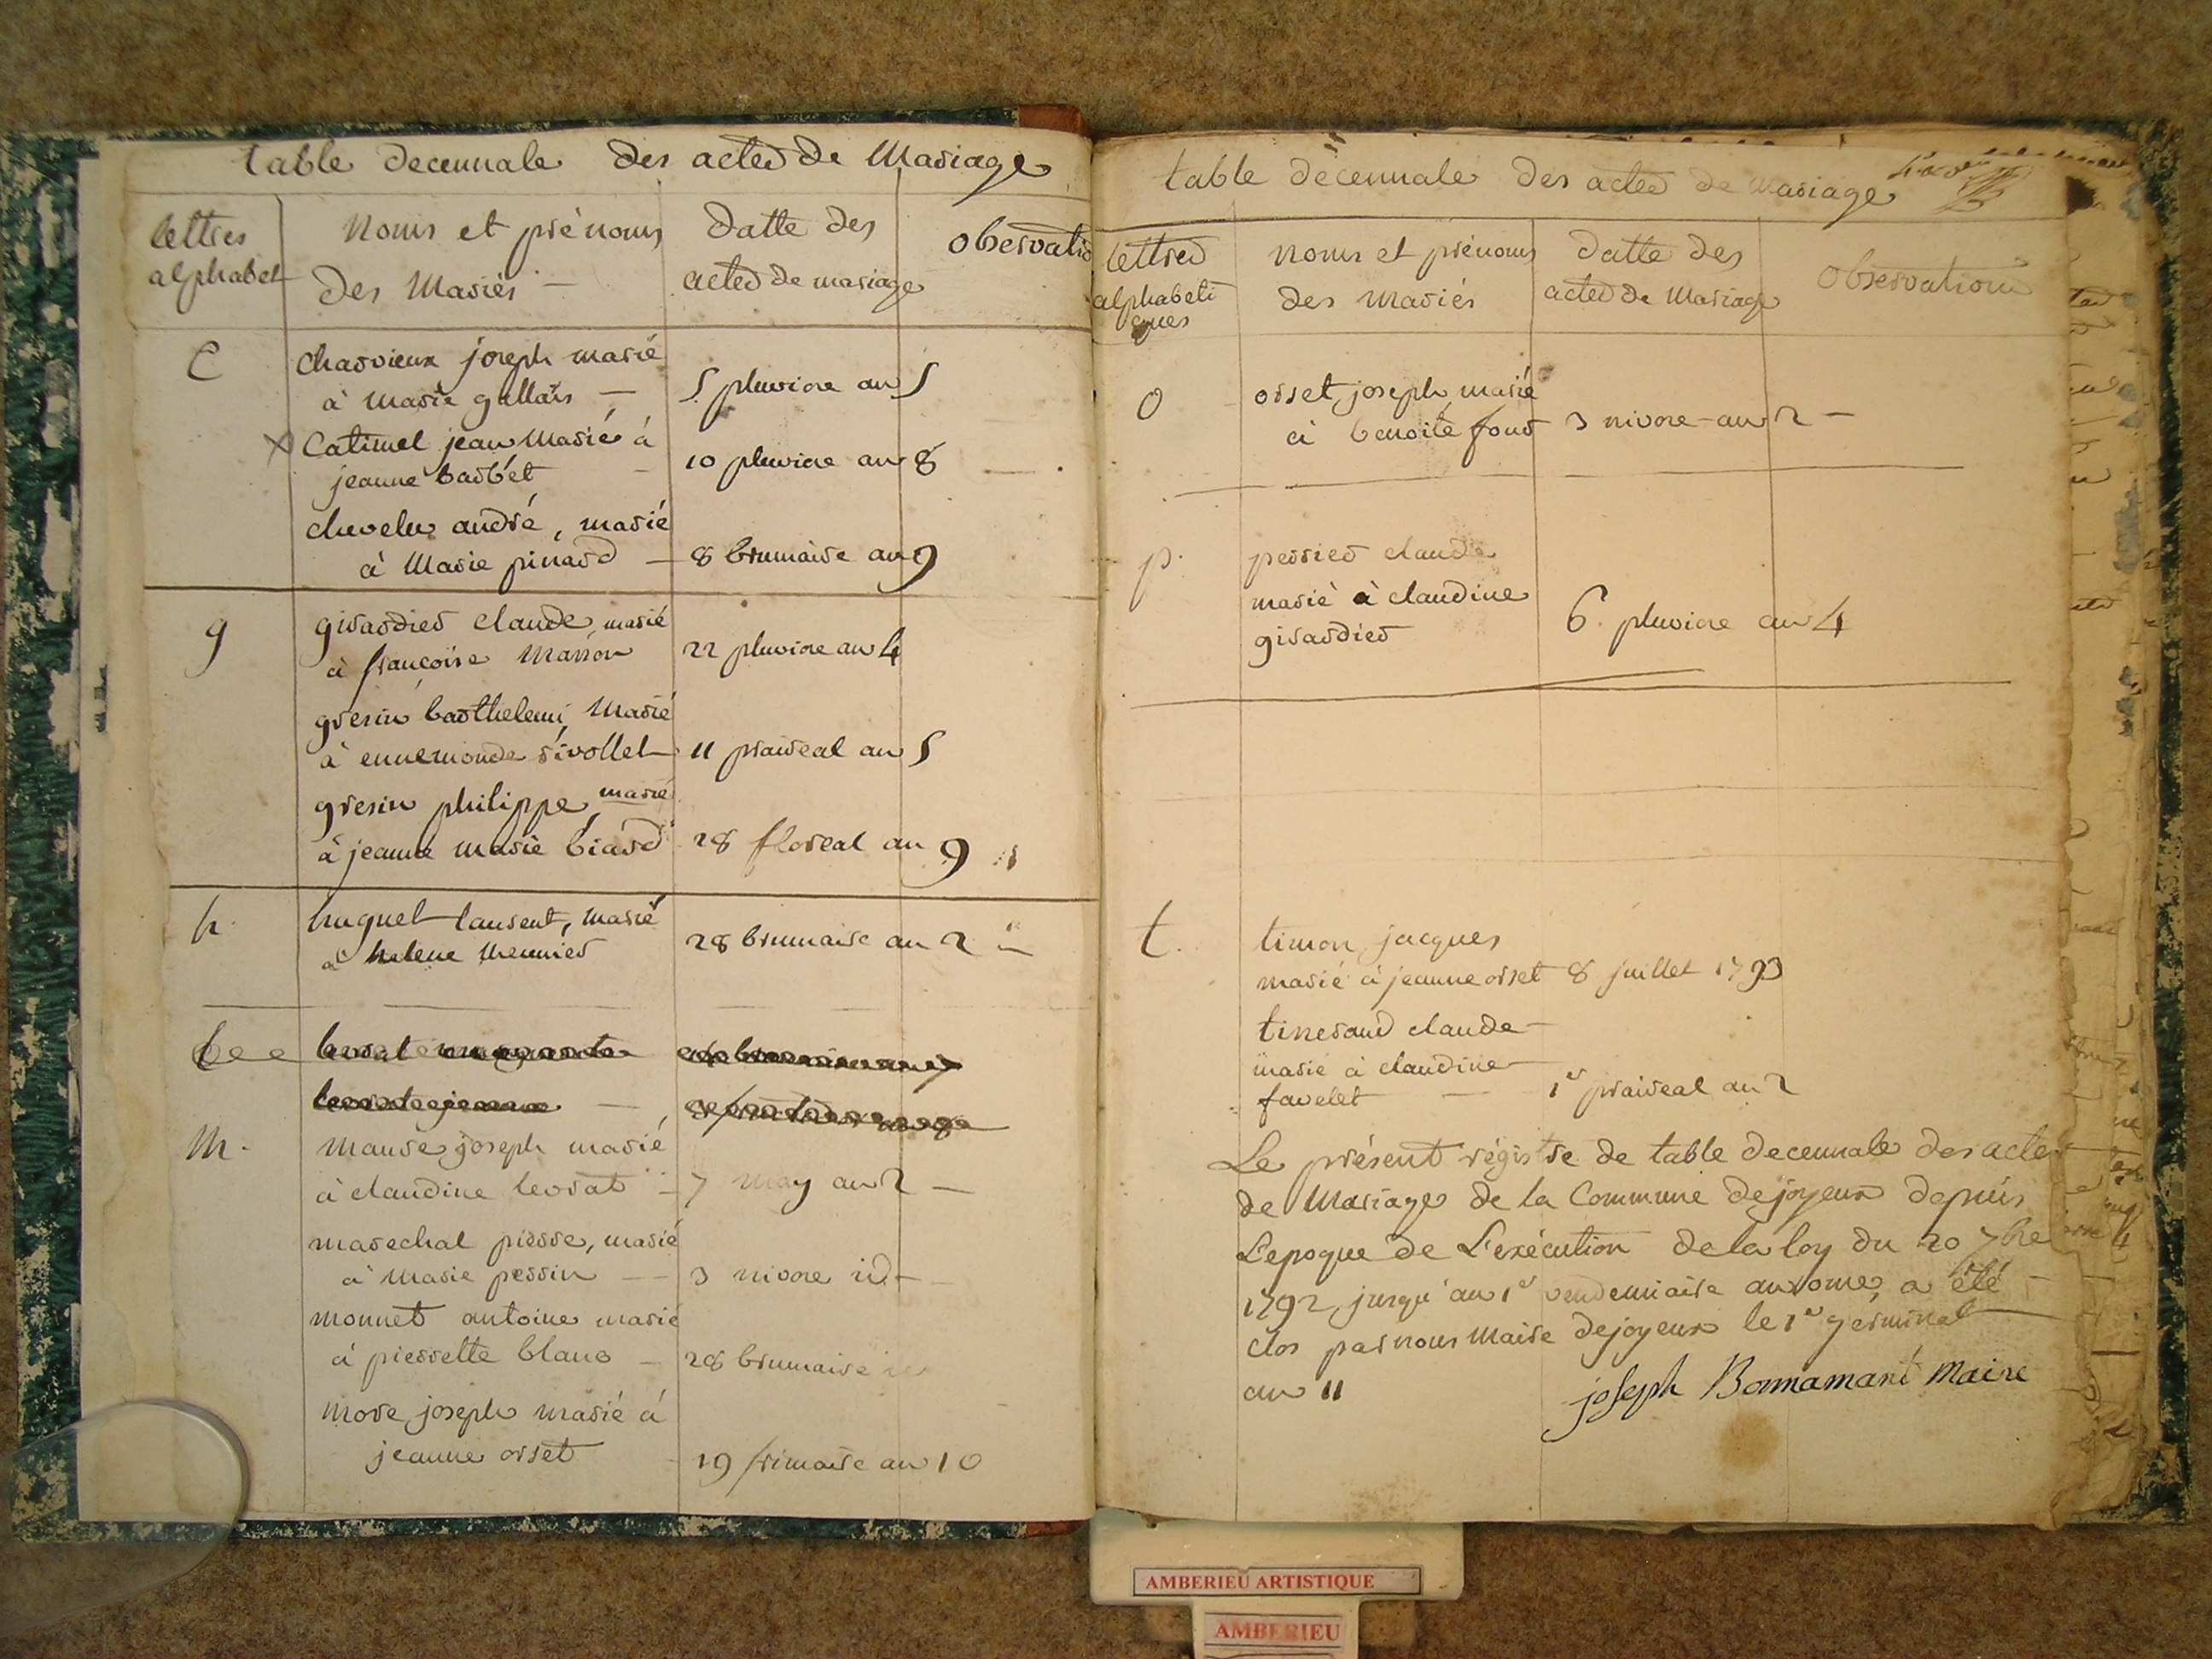 table decennale des actes de Mariage
lettres
alphabet
Noms et prénoms
des Mariés —
datte des
actes de mariage
observatio
C
charvieux joseph marié
à marie gallais —
5 pluviose an 5
Catimel jean Marié à
jeanne barbet —
10 pluviose an 8
chevelu andré, marié
à Marie pinard —
8 brumaire an 9
g
girardier claude, marié
à françoise Masson
22 pluviose an 4
gresin barthelemi, Marié
à ennemonde rivollet
11 prairéal an 5
gresin philippe, marié
à jeanne marie biard
28 floreal an 9
h.
huguet laurent, marié
à helene meunier
28 brumaire an 2
M.
joseph marié
à claudine levrat
7 may an 2 —
marechal pierre, marié
à Marie pessin —
3 nivose id —
monnet antoine marié
à pierrette blanc —
28 brumaire
more joseph marié à
jeanne orset
19 frimaire an 10
table décennale des actes de mariage
lettres
alphabeti
ques
Noms et prénoms
des mariés
datte des
actes de Mariage
Observations
O
orset, joseph, marié
à benoite four
3 nivose an 2 —
p.
perrier claude
marié à claudine
girardier
6. pluviose an 4
t.
timon jacques
marié à jeanne orset
8 juillet 1793
tineraud claude —
marié à claudine —
favelet —
1er prairéal an 2
Le présent régistre de table decennale des actes
de Mariage de la Commune dejoyeux depuis
L'epoque de L'exécution de la loy du 20 7bre
1792, jusqu'au 1er vendemiaire an onze, a été
clos par nous Maire dejoyeux le 1er gérminal
an 11
joseph Bonnamant Maire
AMBERIEU ARTISTIQUE
AMBERIEU